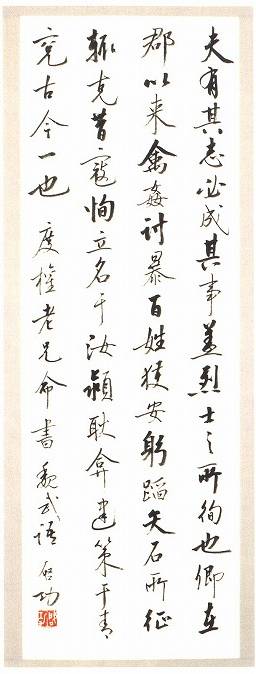 夫有其志必成其事蓋烈士之所徇也卿在
郡以来禽姦討暴百姓獲安躬蹈矢石所征
輒克昔寇恂立名于汝潁耿弇建策于青
兗古今一也 度權老兄命書 魏武語 啓功